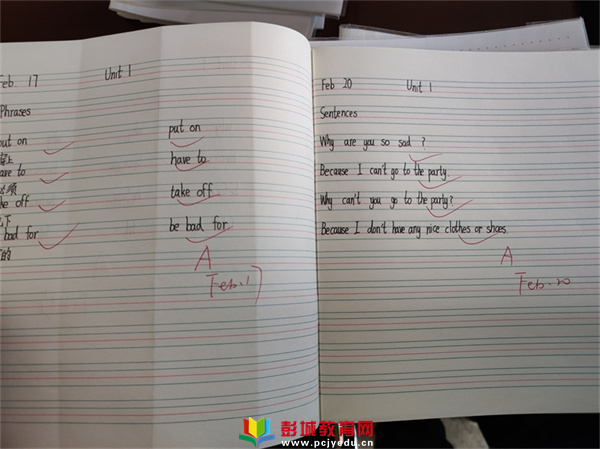 Feb. 17 Unit 1
Phrases
put on put on
have to have to
take off take off
bad for be bad for
的
A
Feb.17
Feb 20 Unit 1
Sentences
Why are you so sad ?
Because I can't go to the party.
Why can't you go to the party?
Because I don't have any nice clothes or shoes.
A
Feb.20
彭城教育网
www.pcjyedu.cn